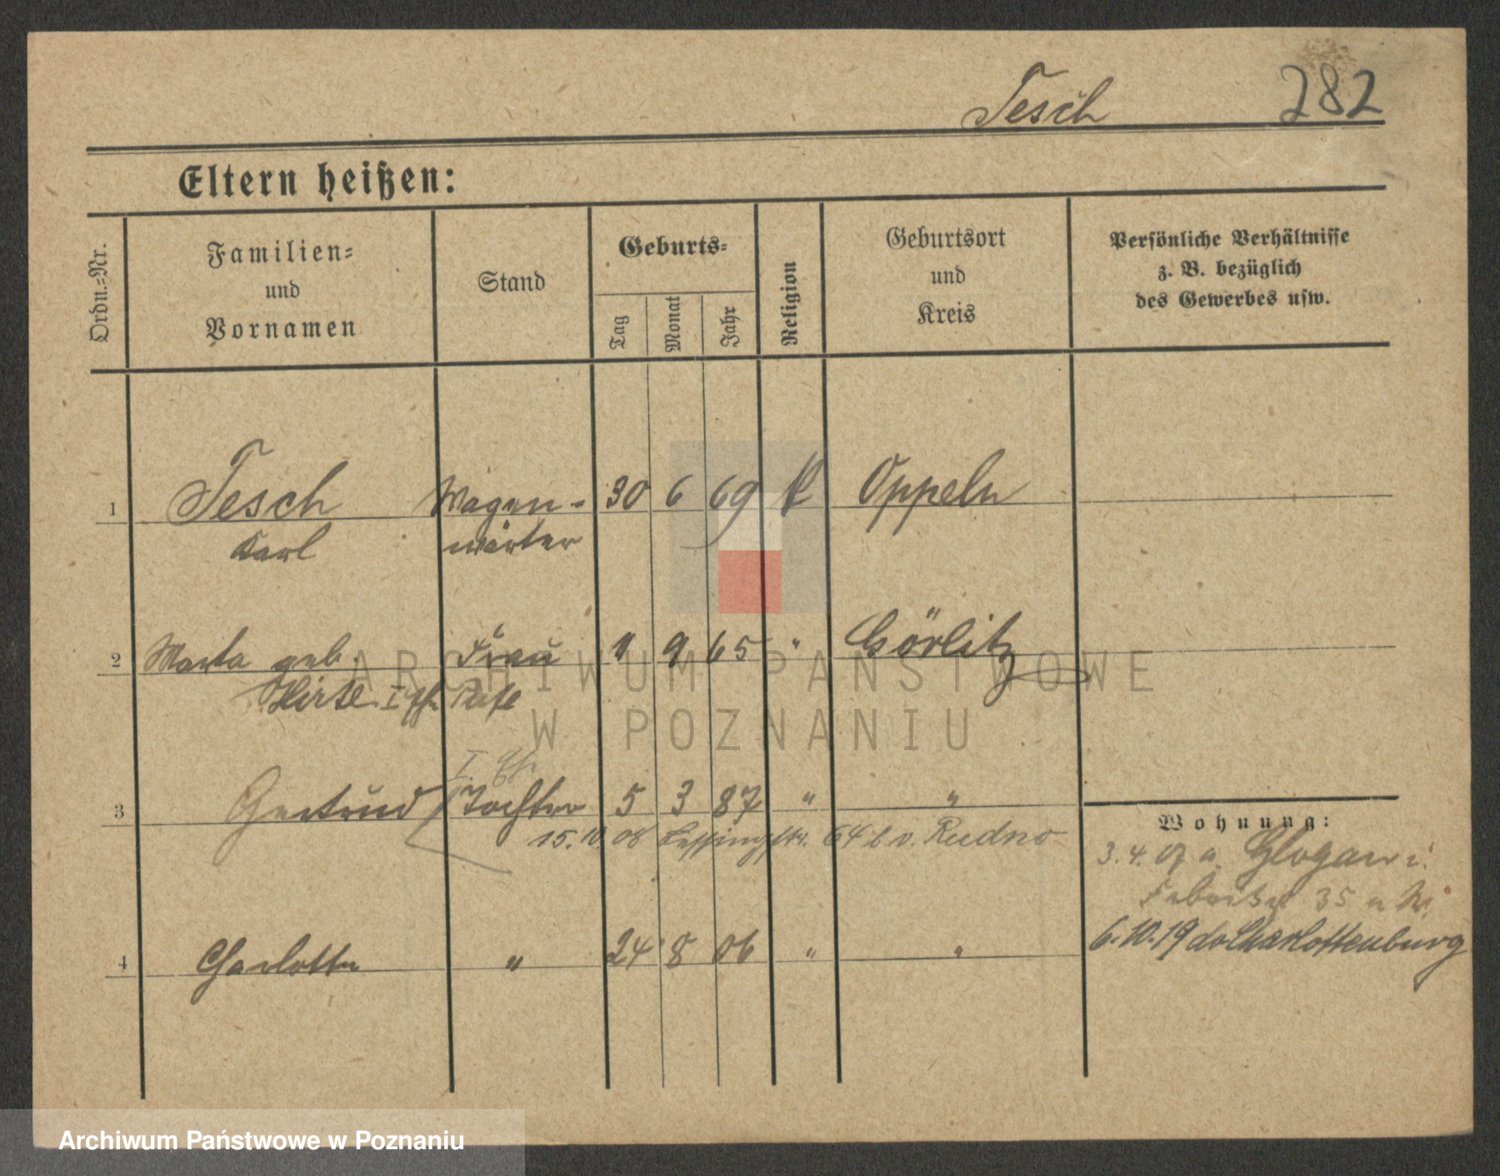 Tesch 282
Eltern heißen:
Ordn.-Nr.
Familien-
und
Vornamen
Stand
Geburts-
Tag
Monat
Jahr
Religion
Geburtsort
und
Kreis
Persönliche Verhältnisse
z. B. bezüglich
des Gewerbes usw.
1 Tesch Wagen- 30 6 69 k Oppeln
Karl wärter
2 Marta geb. Frau 9 65 " Görlitz
Hirse I
I. Eh.
3 Gertrud Tochter 5 3 87 " "
15.10.08 Lessingstr. v. Rudno
Wohnung:
3.4.07 a. Glogau
35
4 Charlotte " 24 8 06 " "
6.10.19 do Charlottenburg
ARCHIWUM PAŃSTWOWE
W POZNANIU
Archiwum Państwowe w Poznaniu